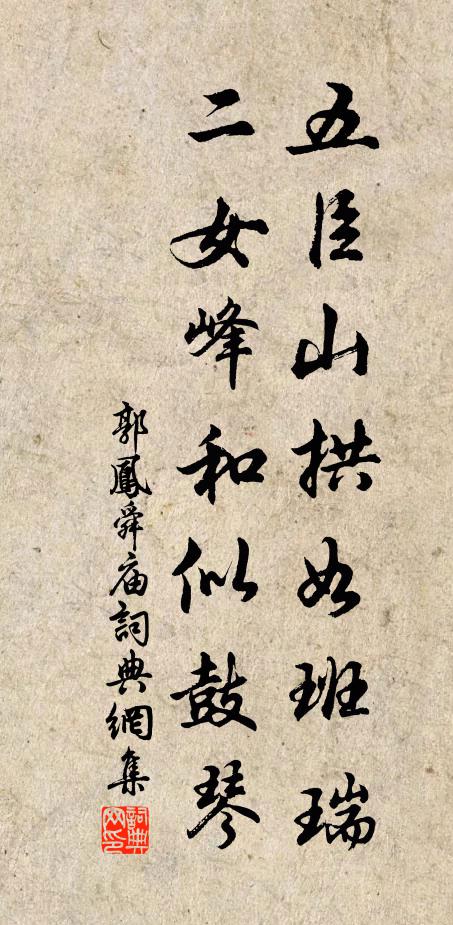 五臣山拱如班瑞
二女峰和似鼓琴
郭鳳舜庙詞典網集
詞典网印